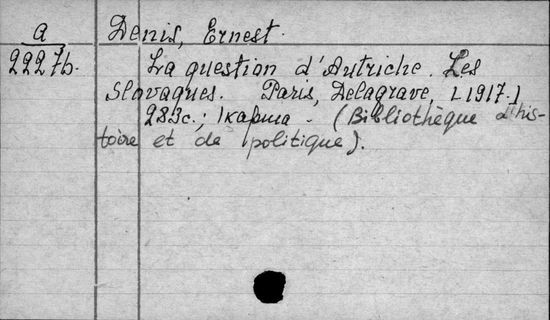 a Denis, Ernest.
22276. La question d'Autriche. Les
Slovaques. Paris, Delagrave, [1917.]
283с.; 1карта. (Bibliothèque d'his-
toire et de politique).